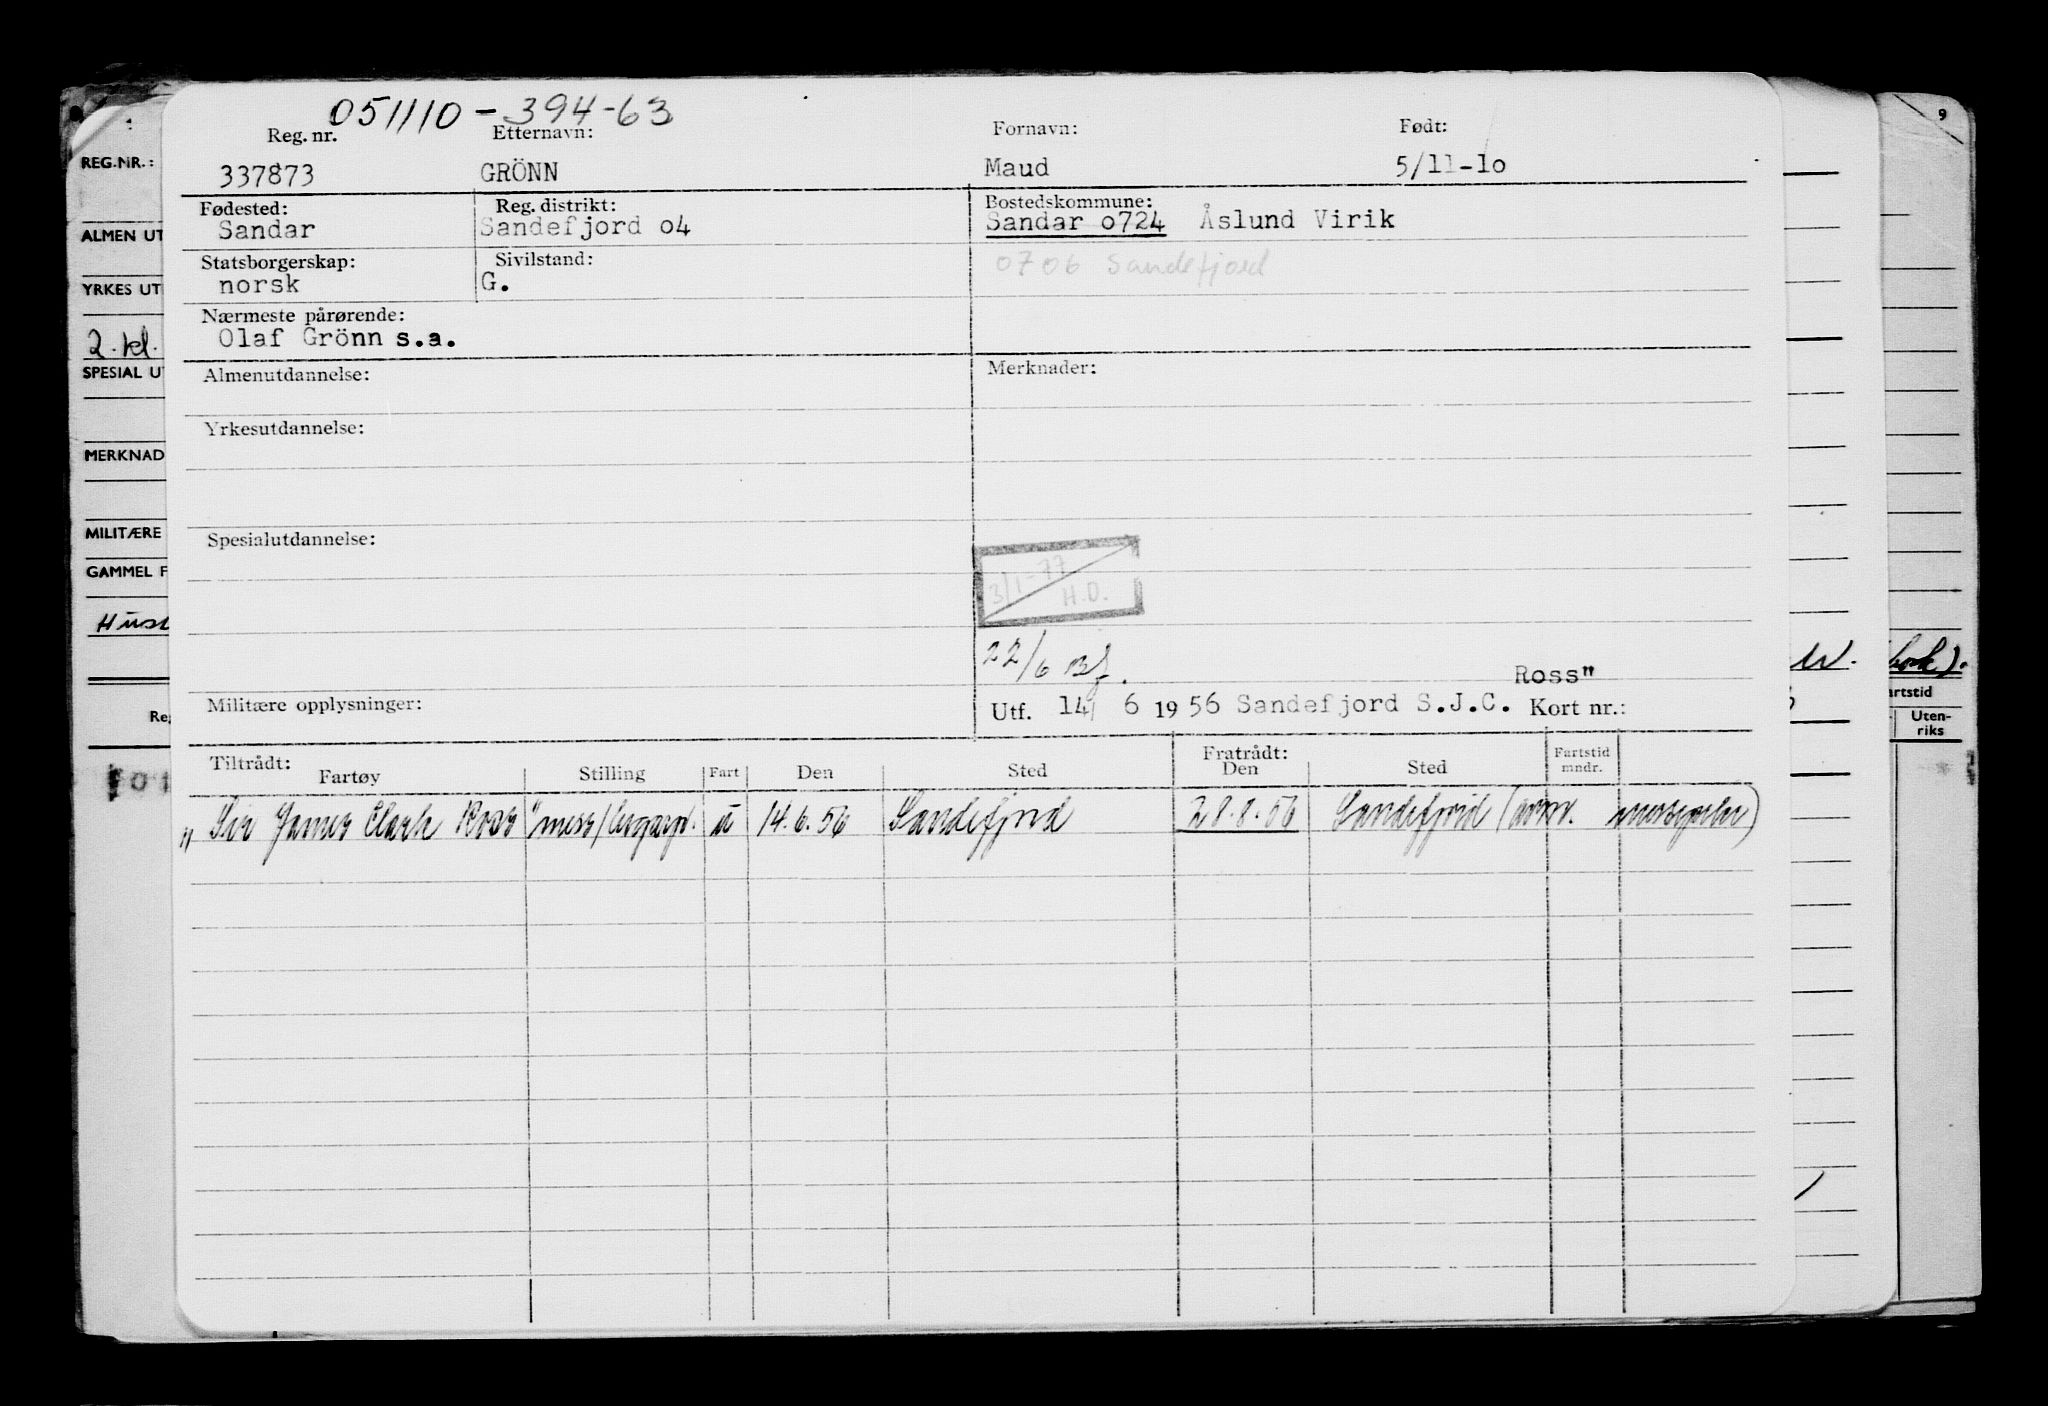 051110-394-63
Reg. nr. Etternavn: Fornavn: Født:
337873 GRÖNN Maud 5/11-1o
Fødested: Reg. distrikt: Bostedskommune:
Sandar Sandefjord o4 Sandar o724 Åslund Virik
Statsborgerskap: Sivilstand: 0706 Sandefjord
norsk G.
Nærmeste pårørende:
Olaf Grönn s.a.
Almenutdannelse: Merknader:
Yrkesutdannelse:
Spesialutdannelse:
3/1-77
H.D.
22/6 Bf.
Ross"
Militære opplysninger: Utf. 14/ 6 19 56 Sandefjord S.J.C. Kort nr.:
Tiltrådt: Fratrådt:
Fartøy Stilling Fart Den Sted Den Sted Fartstid mndr.
"Sir James Clark Ross" mess/ u 14.6.56 Sandefjord 28.8.56 Sandefjord
REG.NR.:
ALMEN UT
YRKES UT
2. kl.
SPESIAL UT
MERKNAD
MILITÆRE
GAMMEL F
Hust
Reg
9
W.
bok).
artstid
Uten-
riks